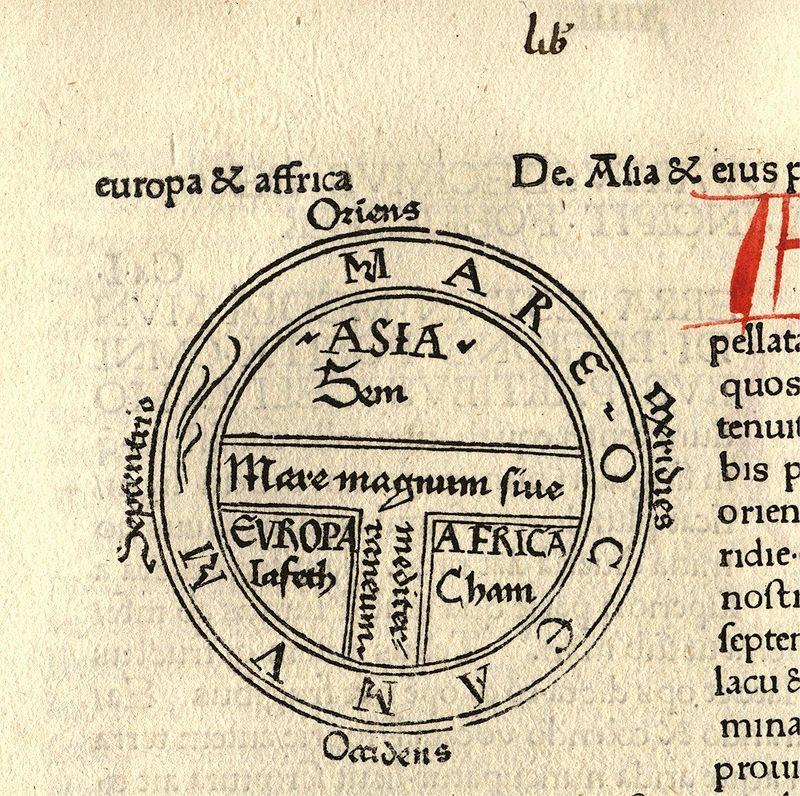 lib
europa & affrica
De. Asia & eius p
Oriens
MARE OCEANVM
ASIA
Sem
Septentrio
Meridies
Mare magnum siue
mediter
raneum
EVROPA
Iafeth
AFRICA
Cham
Occidens
pellata
quos
tenuit
bis p
orien
ridie.
nostr
septen
lacu &
mina
proui